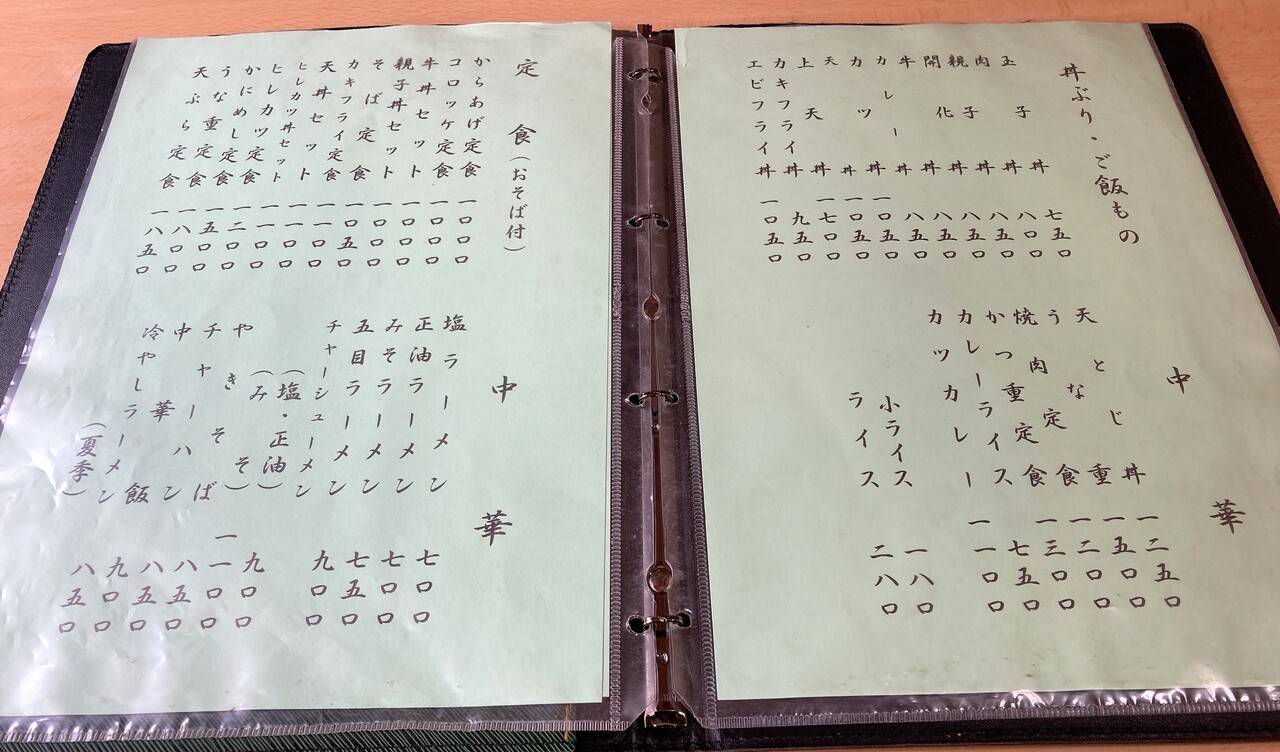 丼ぶり・ご飯もの
玉子丼 七五〇
肉丼 八〇〇
親子丼 八五〇
開化丼 八五〇
牛丼 八五〇
カレー丼 八五〇
カツ丼 一〇五〇
天丼 一〇五〇
上天丼 一七〇〇
カキフライ丼 九五〇
エビフライ丼 一〇五〇
中華
天とじ丼 一二五〇
うな重 一五〇〇
焼肉定食 一二〇〇
かつ重定食 一三〇〇
カレーライス 七五〇
カツカレー 一一〇〇
小ライス 一八〇
ライス 二八〇
定食（おそば付）
からあげ定食 一〇〇〇
コロッケ定食 一〇〇〇
牛丼セット 一〇〇〇
親子丼セット 一〇〇〇
そば定食 一〇五〇
カキフライ定食 一一〇〇
天丼セット 一一〇〇
ヒレカツ丼セット 一一〇〇
ヒレカツ定食 一二〇〇
かにめし定食 一五〇〇
うな重定食 一八〇〇
天ぷら定食 一八五〇
中華
塩ラーメン 七〇〇
正油ラーメン 七〇〇
みそラーメン 七五〇
五目ラーメン 九〇〇
チャーシューメン
（塩・正油） 九〇〇
（みそ） 一一〇〇
やきそば 八五〇
チャーハン 八五〇
中華飯 九〇〇
冷やしラーメン 八五〇
（夏季）